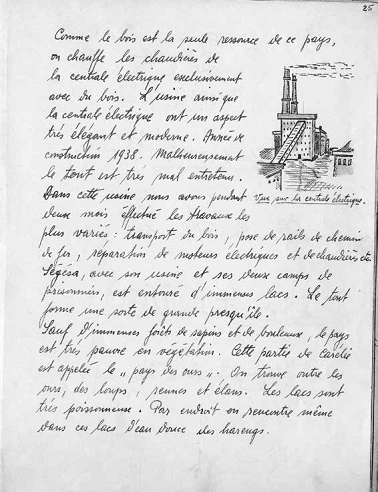 25
Comme le bois est la seule ressource de ce pays,
on chauffe les chaudières de
la centrale électrique exclusivement
avec du bois. L'usine ainsi que
la centrale électrique ont un aspect
très élégant et moderne. Année de
construction 1938. Malheureusement
le tout est très mal entretenu.
Dans cette usine nous avons pendant
Vue sur la centrale électrique.
deux mois effectué les travaux les
plus variés: transport du bois, pose de rails de chemin
de fer, réparation de moteurs électriques et de chaudières etc.
Ségésa, avec son usine et ses deux camps de
prisonniers, est entouré d'immenses lacs. Le tout
forme une sorte de grande presqu'île.
Sauf d'immenses forêts de sapins et de bouleaux, le pays
est très pauvre en végétation. Cette partie de Carélie
est appelée le „pays des ours". On trouve outre les
ours, des loups, rennes et élans. Les lacs sont
très poissonneuse. Par endroit on rencontre même
dans ces lacs d'eau douce des harengs.